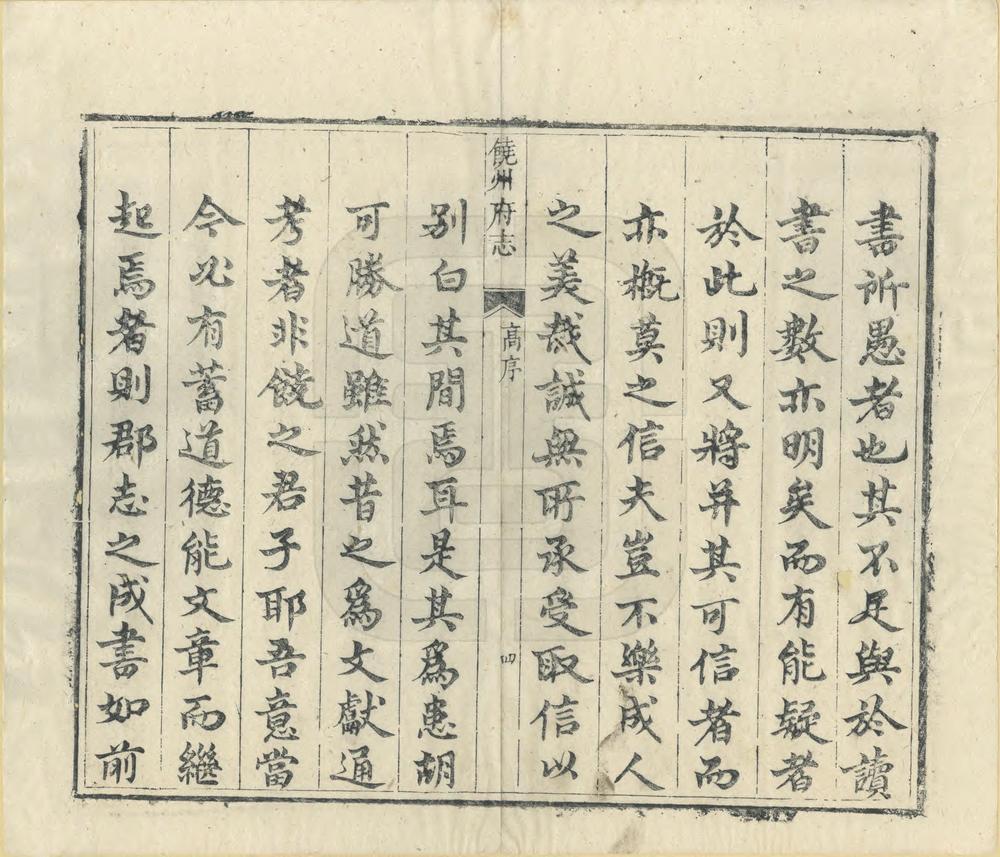 書所愚者也其不足與於讀
書之數亦明矣而有能疑者
於此則又將并其可信者而
亦概莫之信夫豈不樂成人
之美哉誠無所承受取信以
饒州府志
高序
四
別白其間焉耳是其為患胡
可勝道雖然昔之為文獻通
考者非饒之君子耶吾意當
今必有蓄道德能文章而繼
起焉者則郡志之成書如前